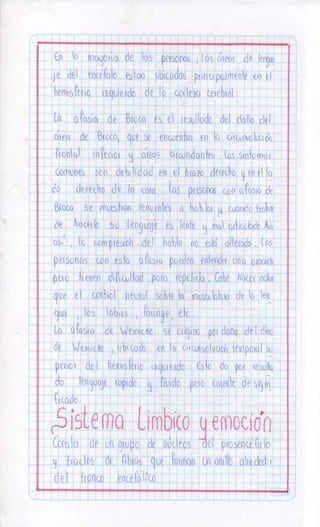 En la mayoria de las personas, los áreas de lengua
je del encéfalo estan ubicados principalmente en el
hemisferio izquierdo de la corteza cerebral.
La afasia de Broca es el resultado del daño del
área de Broca, que se encuentra en la circunvolución
frontal inferior y áreas circundantes. Los sintomas
comunes son debilidad en el brazo derecho y en el la
do derecho de la cara. Las personas con afasia de
Broca se muestran renuentes a hablar y cuando tratan
de hacerlo su lenguaje es lento y mal articulado. Aun
así, la compresión del habla no está alterada. Las
personas con esta afasia pueden entender una oración
pero tienen dificultad para repetirla. Cabe hacer notar
que el control neural sobre la musculatura de la len
gua, los labios, faringe, etc.
La afasia de Wernicke se origina por daño del área
de Wernicke, ubicada en la circunvolución temporal su
perior del hemisferio izquierdo. Esto da por resulta
do lenguaje rapido y fluido pero carente de signi
ficado
Sistema Limbico y emoción
Consta de un grupo de núcleos del prosencéfalo
y tractos de fibras que forman un anillo alrededor
del tronco encefálico